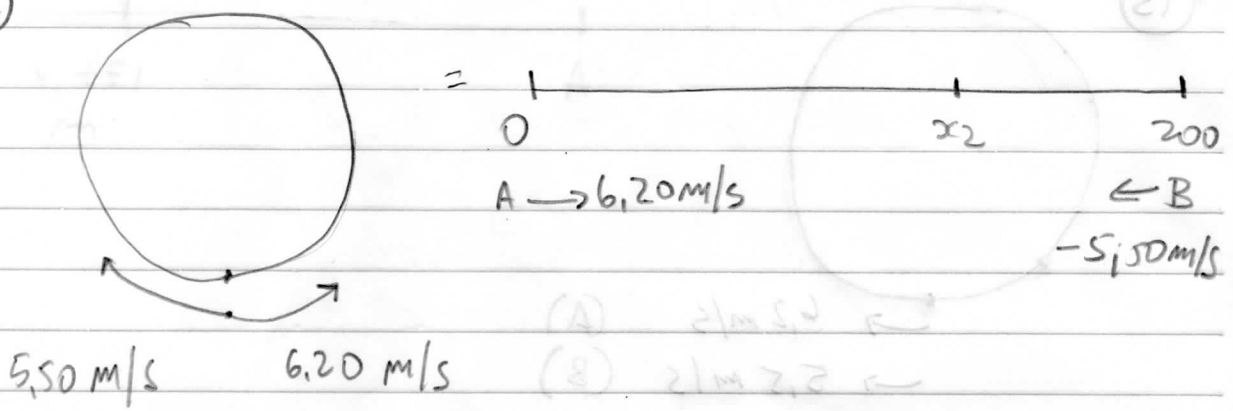 =
0 x2 200
A → 6,20 m/s ← B
-5,50 m/s
5,50 m/s 6.20 m/s